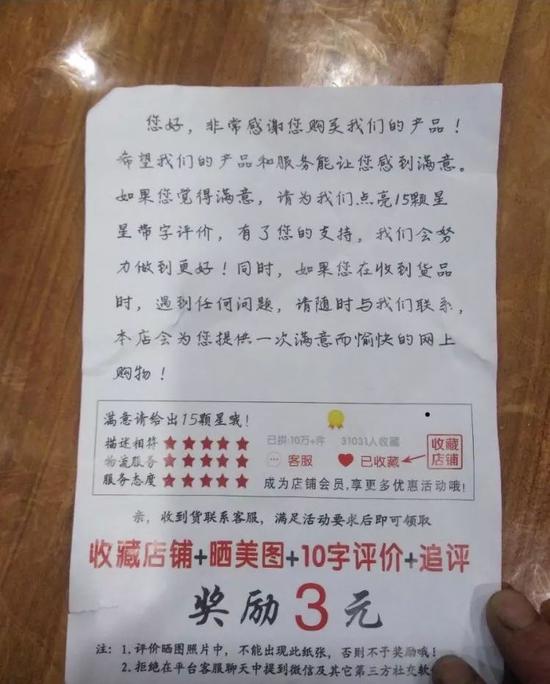 您好，非常感谢您购买我们的产品！
希望我们的产品和服务能让您感到满意。
如果您觉得满意，请为我们点亮15颗星
星带字评价，有了您的支持，我们会努
力做到更好！同时，如果您在收到货品
时，遇到任何问题，请随时与我们联系，
本店会为您提供一次满意而愉快的网上
购物！
满意请给出15颗星哦！
描述相符 ★★★★★ 已拼:10万+件 31031人收藏 收藏
物流服务 ★★★★★ 客服 已收藏 店铺
服务态度 ★★★★★ 成为店铺会员,享更多优惠活动哦!
亲，收到货联系客服，满足活动要求后即可领取
收藏店铺+晒美图+10字评价+追评
奖励3元
注：1.评价晒图照片中，不能出现此纸张，否则不予奖励哦！
2.拒绝在平台客服聊天中提到微信及其它第三方社交软